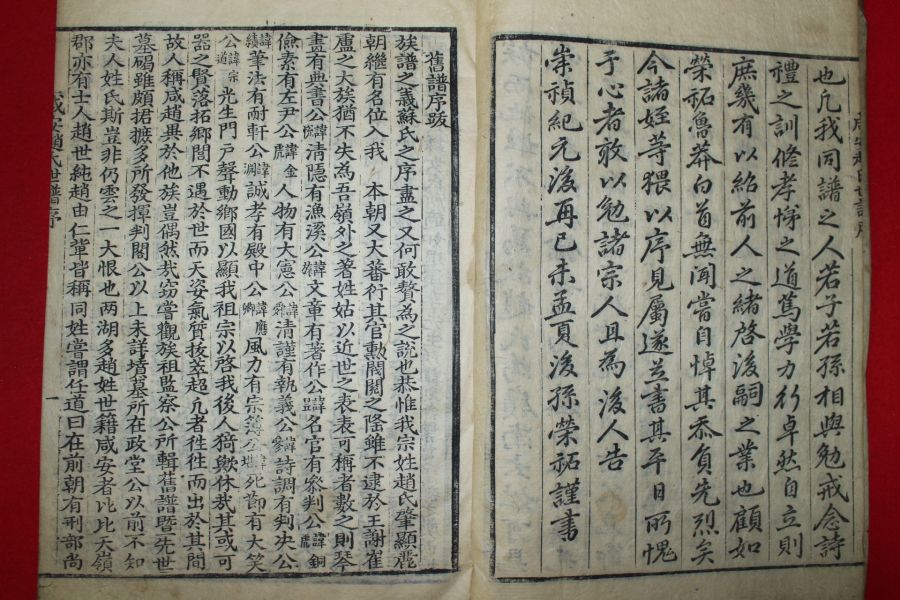 也凡我同譜之人若子若孫相與勉戒念詩
禮之訓修孝悌之道篤學力行卓然自立則
庶幾有以紹前人之緒啓後嗣之業也顧如
榮祏魯莽白首無聞嘗自悼其忝負先烈矣
今諸姪等猥以序見屬遂並書其平日所愧
于心者敢以勉諸宗人且為後人告
崇禎紀元後再己未孟夏後孫榮祏謹書
舊譜序跋
族譜之義蘇氏之序盡之又何敢贅為之說也恭惟我宗姓趙氏肇顯麗
朝繼有名位入我 本朝又大蕃衍其官勳閥閱之隆雖不逮於王謝崔
盧之大族猶不失為吾嶺外之著姓姑以近世之表表可稱者數之則琴
晝有典書公諱清隱有漁溪公諱文章有著作公諱名官有叅判公諱銅
儉素有左尹公諱金人物有大憲公諱清謹有執義公諱詩調有判决公
諱績筆法有耐軒公諱淵誠孝有殿中公諱應卿風力有宗簿公諱死節有大笑
公諱宗道光生門戶聲動鄉國以顯我祖宗以啓我後人猗歟休哉其或可
器之賢落拓鄉閭不遇於世而天姿氣質抜萃超凡者徃徃而出於其間
故人稱咸趙異於他族豈偶然哉窃嘗觀族祖監察公所輯舊譜曁先世
墓碣雖頗捃摭多所發揮判閣公以上未詳墳墓所在政堂公以前不知
夫人姓氏斯豈非仍雲之一大恨也両湖多趙姓世籍咸安者比比大嶺
郡亦有士人趙世純趙由仁軰皆稱同姓嘗謂任道曰在前朝有刑部尚
咸安趙氏世譜序 一